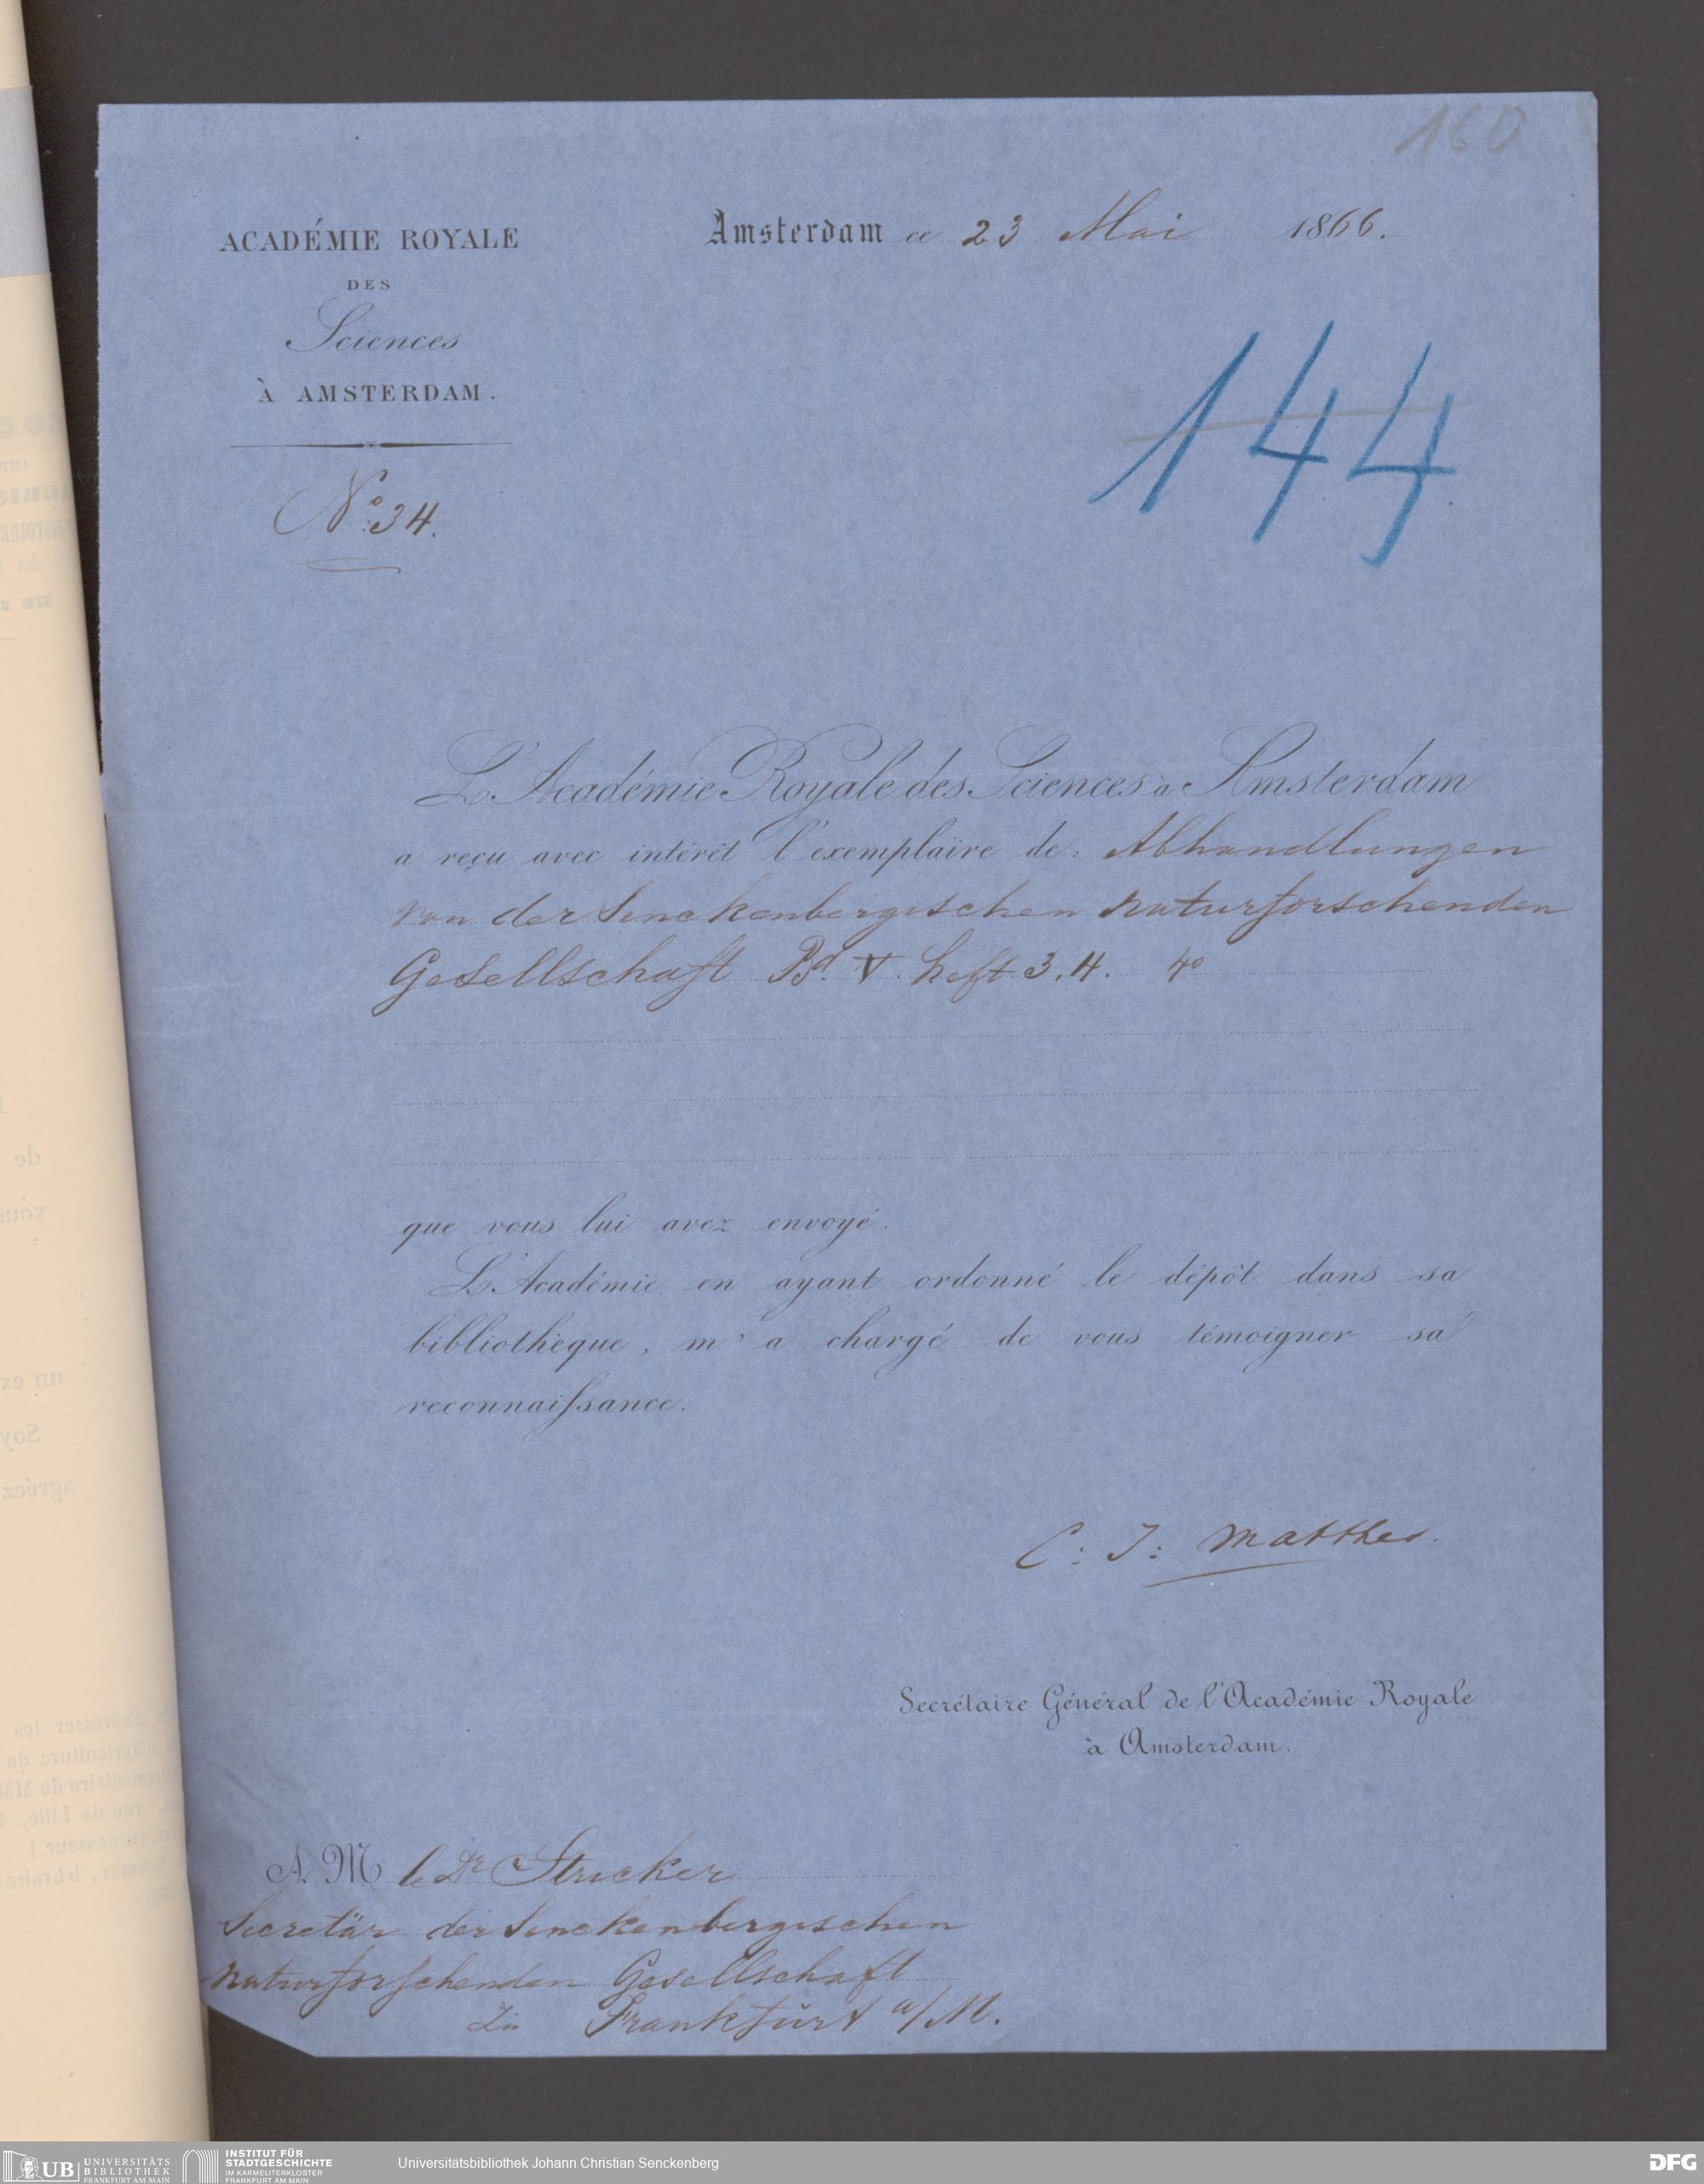 160
ACADÉMIE ROYALE
DES
Sciences
À AMSTERDAM.
Amsterdam ce 23 Mai 1866.
144
Nº 34.
L'Académie Royale des Sciences à Amsterdam
a reçu avec intérêt l'exemplaire de: Abhandlungen
von der Senckenbergischen Naturforschenden
Gesellschaft Bd. V. Heft 3.4. 4º
que vous lui avez envoyé.
L'Académie en ayant ordonné le dépôt dans sa
bibliothèque, m'a chargé de vous témoigner sa
reconnaiſsance.
C: J: Matthes.
Secrétaire Général de l'Académie Royale
à Amsterdam.
A. M le Dr Stricker
Secretär der Senckenbergischen
Naturforschenden Gesellschaft
zu Frankfürt a/M.
UB UNIVERSITÄTS
BIBLIOTHEK
FRANKFURT AM MAIN
INSTITUT FÜR
STADTGESCHICHTE
IM KARMELITERKLOSTER
FRANKFURT AM MAIN
Universitätsbibliothek Johann Christian Senckenberg
DFG